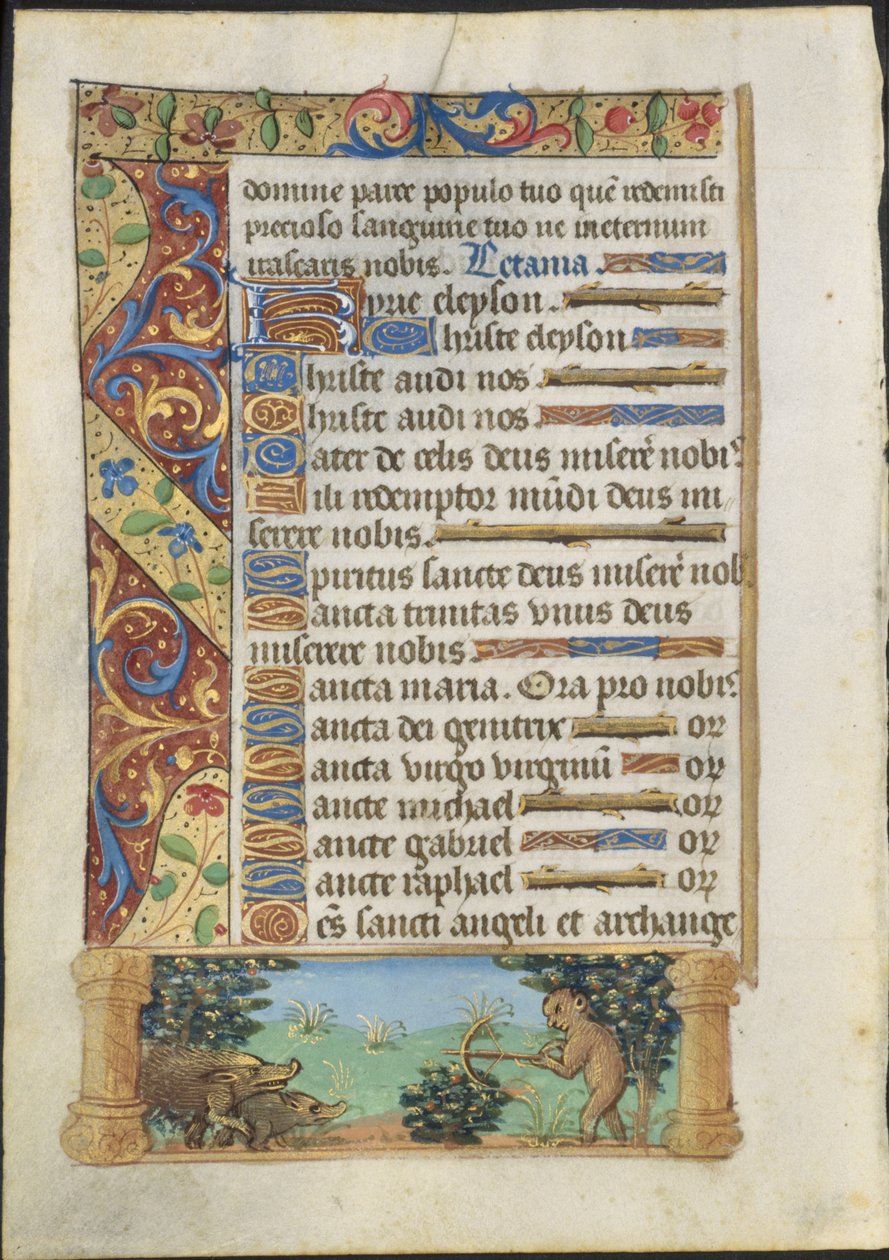 domine parce populo tuo quē redemisti
precioso sanguine tuo ne ineternum
irascaris nobis. Letania
Kyrie eleyson.
Christe eleyson
Christe audi nos
Christe audi nos
Pater de celis deus miserē nobis
Fili redemptor mūdi deus mi
serere nobis.
Spiritus sancte deus miserē nob
Sancta trinitas vnus deus
miserere nobis.
Sancta maria. Ora pro nobis
Sancta dei genitrix or
Sancta virgo virginū or
Sancte michael or
Sancte gabriel or
Sancte raphael or
Oēs sancti angeli et archange